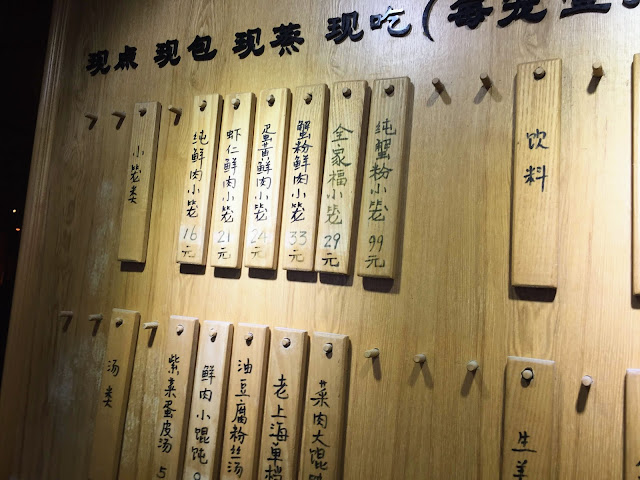 现点 现包 现蒸 现吃(每笼
小笼类
纯鲜肉小笼 16元
虾仁鲜肉小笼 21元
蛋黄鲜肉小笼 24元
蟹粉鲜肉小笼 33元
全家福小笼 29元
纯蟹粉小笼 99元
饮料
汤类
紫菜蛋皮汤 5
鲜肉小馄饨
油豆腐粉丝汤
老上海单档
菜肉大馄饨
生